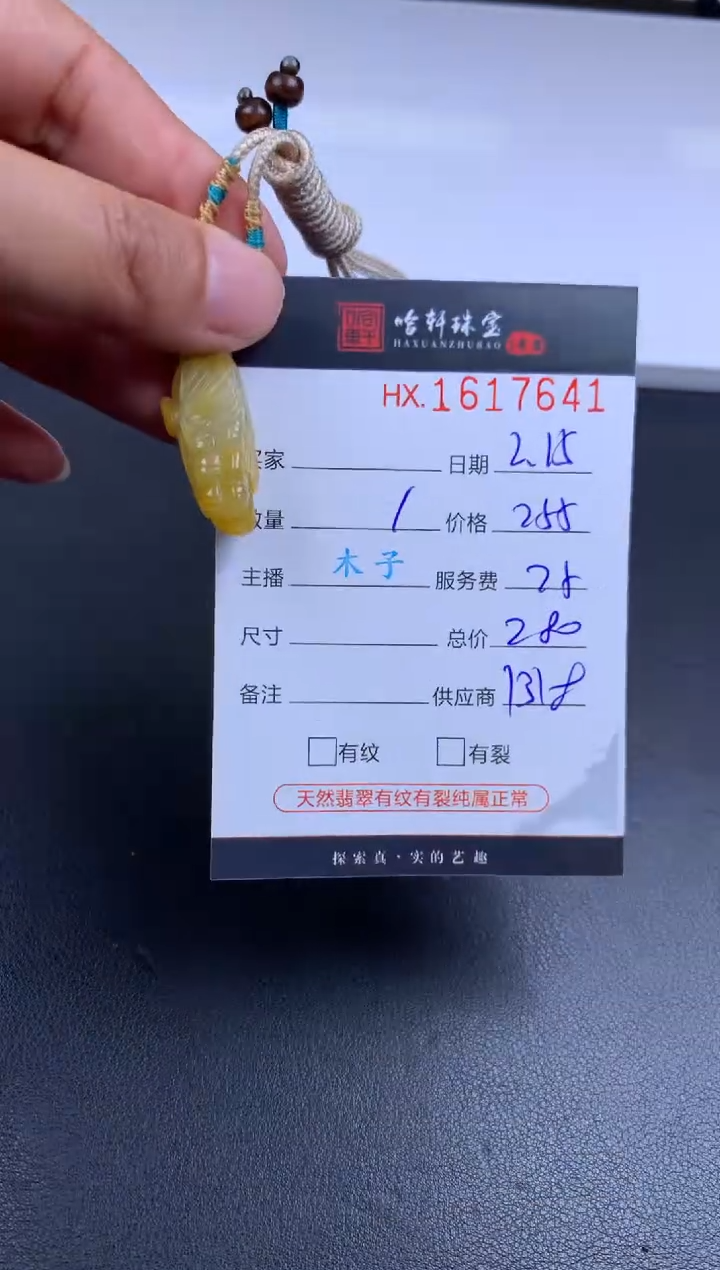 哈轩珠宝
HAXUANZHUBAO
HX.1617641
买家 日期 2.15
数量 1 价格 255
主播 木子 服务费 25
尺寸 总价 280
备注 供应商 1318
有纹 有裂
天然翡翠有纹有裂纯属正常
探索真·实的艺趣